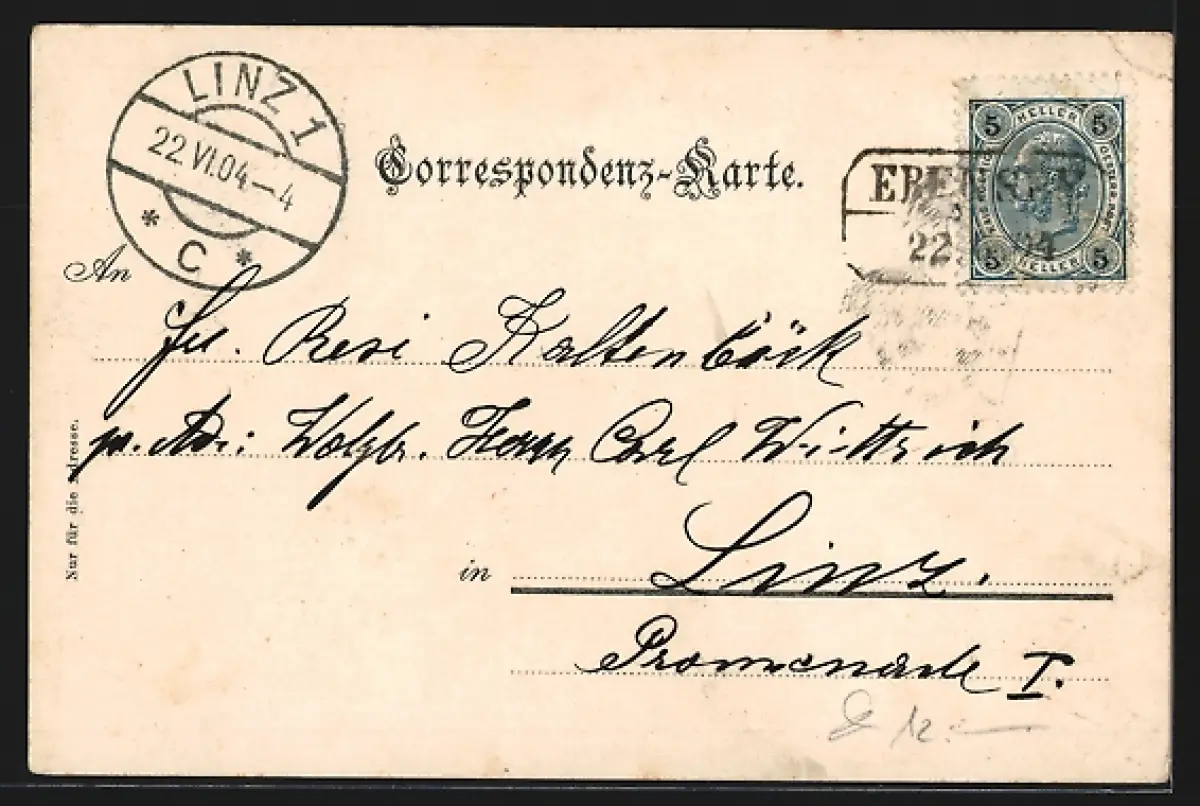 LINZ 1
22.VI.04-4
* C *
Correspondenz-Karte.
5 HELLER 5
5 HELLER 5
22. 04
An
Frl. Resi Kaltenböck
p. Adr: Wolgb. Herrn Carl Wittrich
in Linz.
Promenade I.
Nur für die Adresse.
12.-